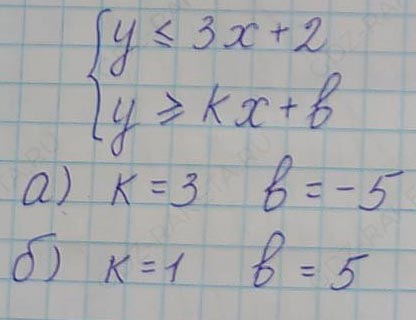 y ≤ 3x + 2
y ≥ kx + b
а) k = 3 b = -5
б) k = 1 b = 5